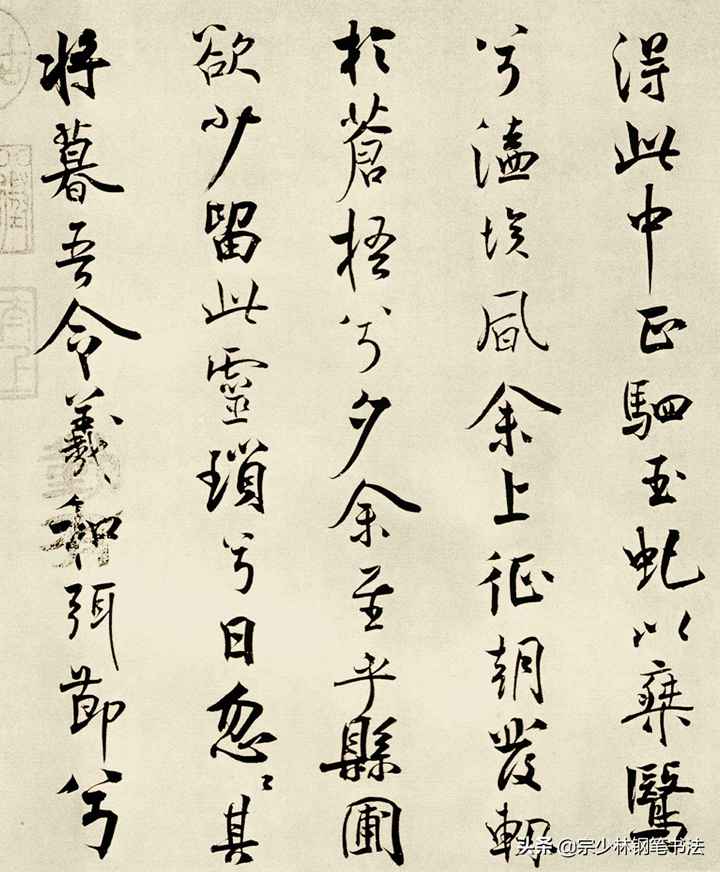 得此中正駟玉虬以乘鷖
兮溘埃風余上征朝發軔
於蒼梧兮夕余至乎縣圃
欲少留此靈瑣兮日忽〻其
将暮吾令羲和弭節兮
头条 @宗少林钢笔书法